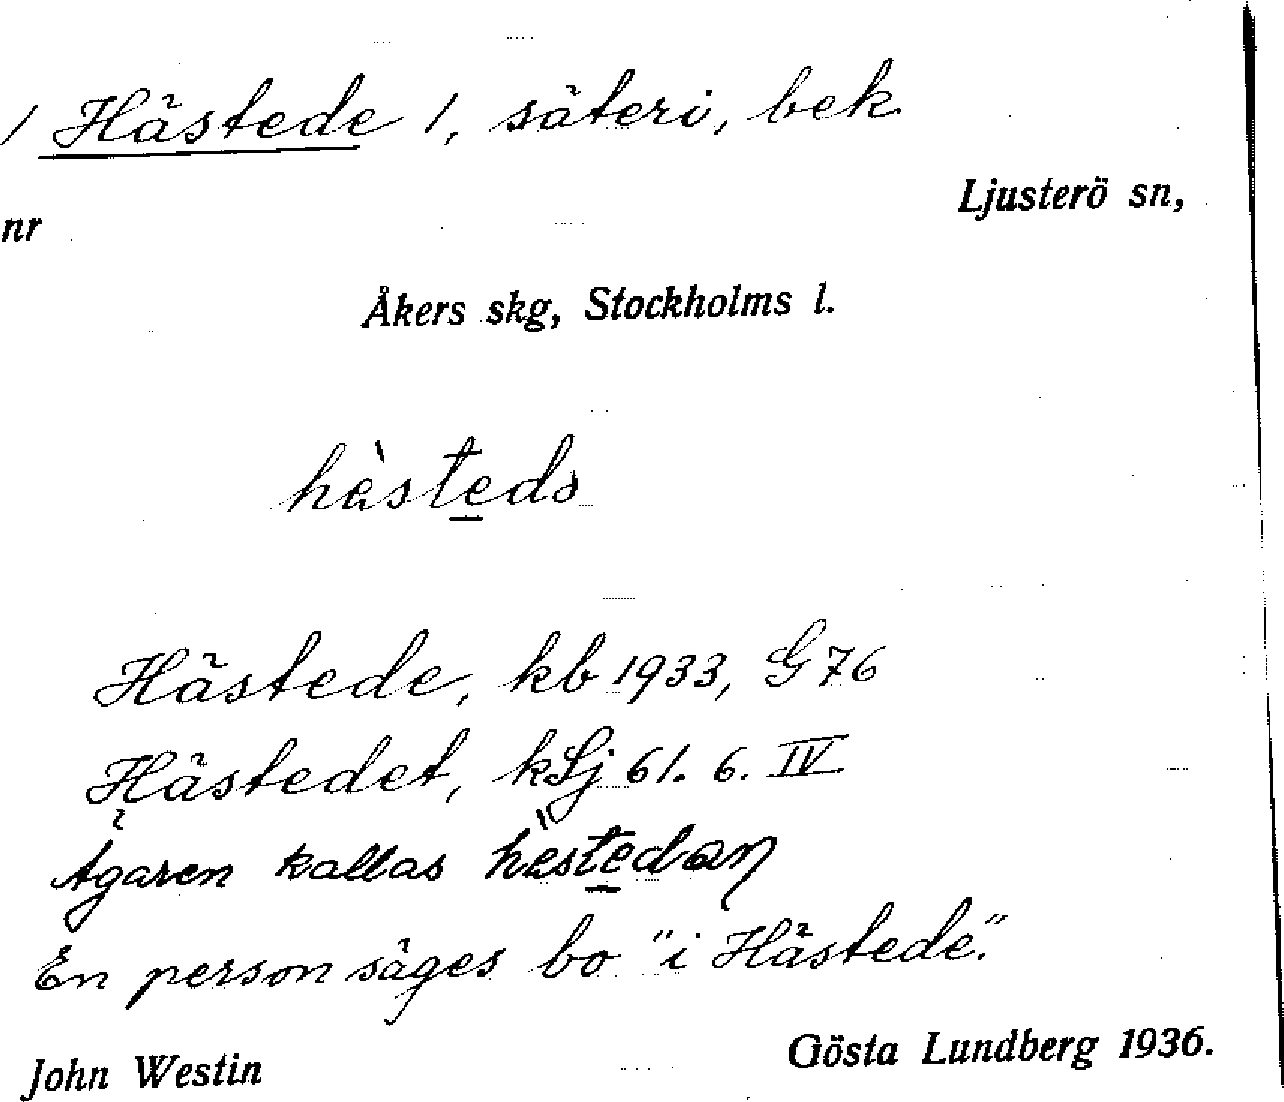 / Hästede 1, säteri, bek
Ljusterö sn,
nr
Åkers skg, Stockholms l.
Hästede, kb 1933, G 76
Hästedet, kLj 61. 6. IV
Ägaren kallas
En person säges bo "i Hästede".
John Westin Gösta Lundberg 1936.